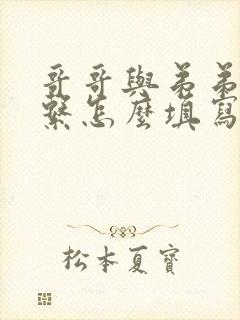 哥哥與弟弟
繫怎麼填寫
松本夏寶